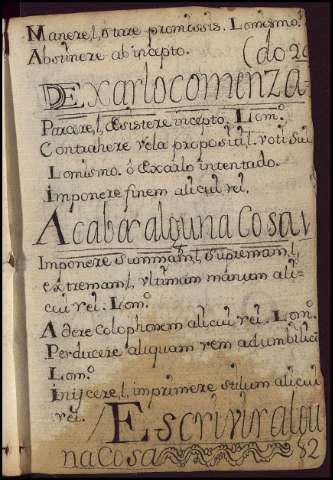 Manere, l, stare promissis. Lomismo.
Absistere ab incepto.
(do 20
DExarlocomenza
Parcere, l, desistere incepto. Lom.o
Contrahere vela propositi, l, voti sui
Lomismo. ó dexarlo intentado.
Imponere finem alicui rei.
Acabar alguna Cosa
Imponere summam, l, supremam, l,
extremam, l, ultimam manum ali-
cui rei. Lom.o
Adere colophonem alicui rei. Lom.o
Perducere aliquam rem adumbilicū
Lom.o
Inijcere, l, imprimere stilum alicui
rei.
Escrivir algu
na Cosa
82